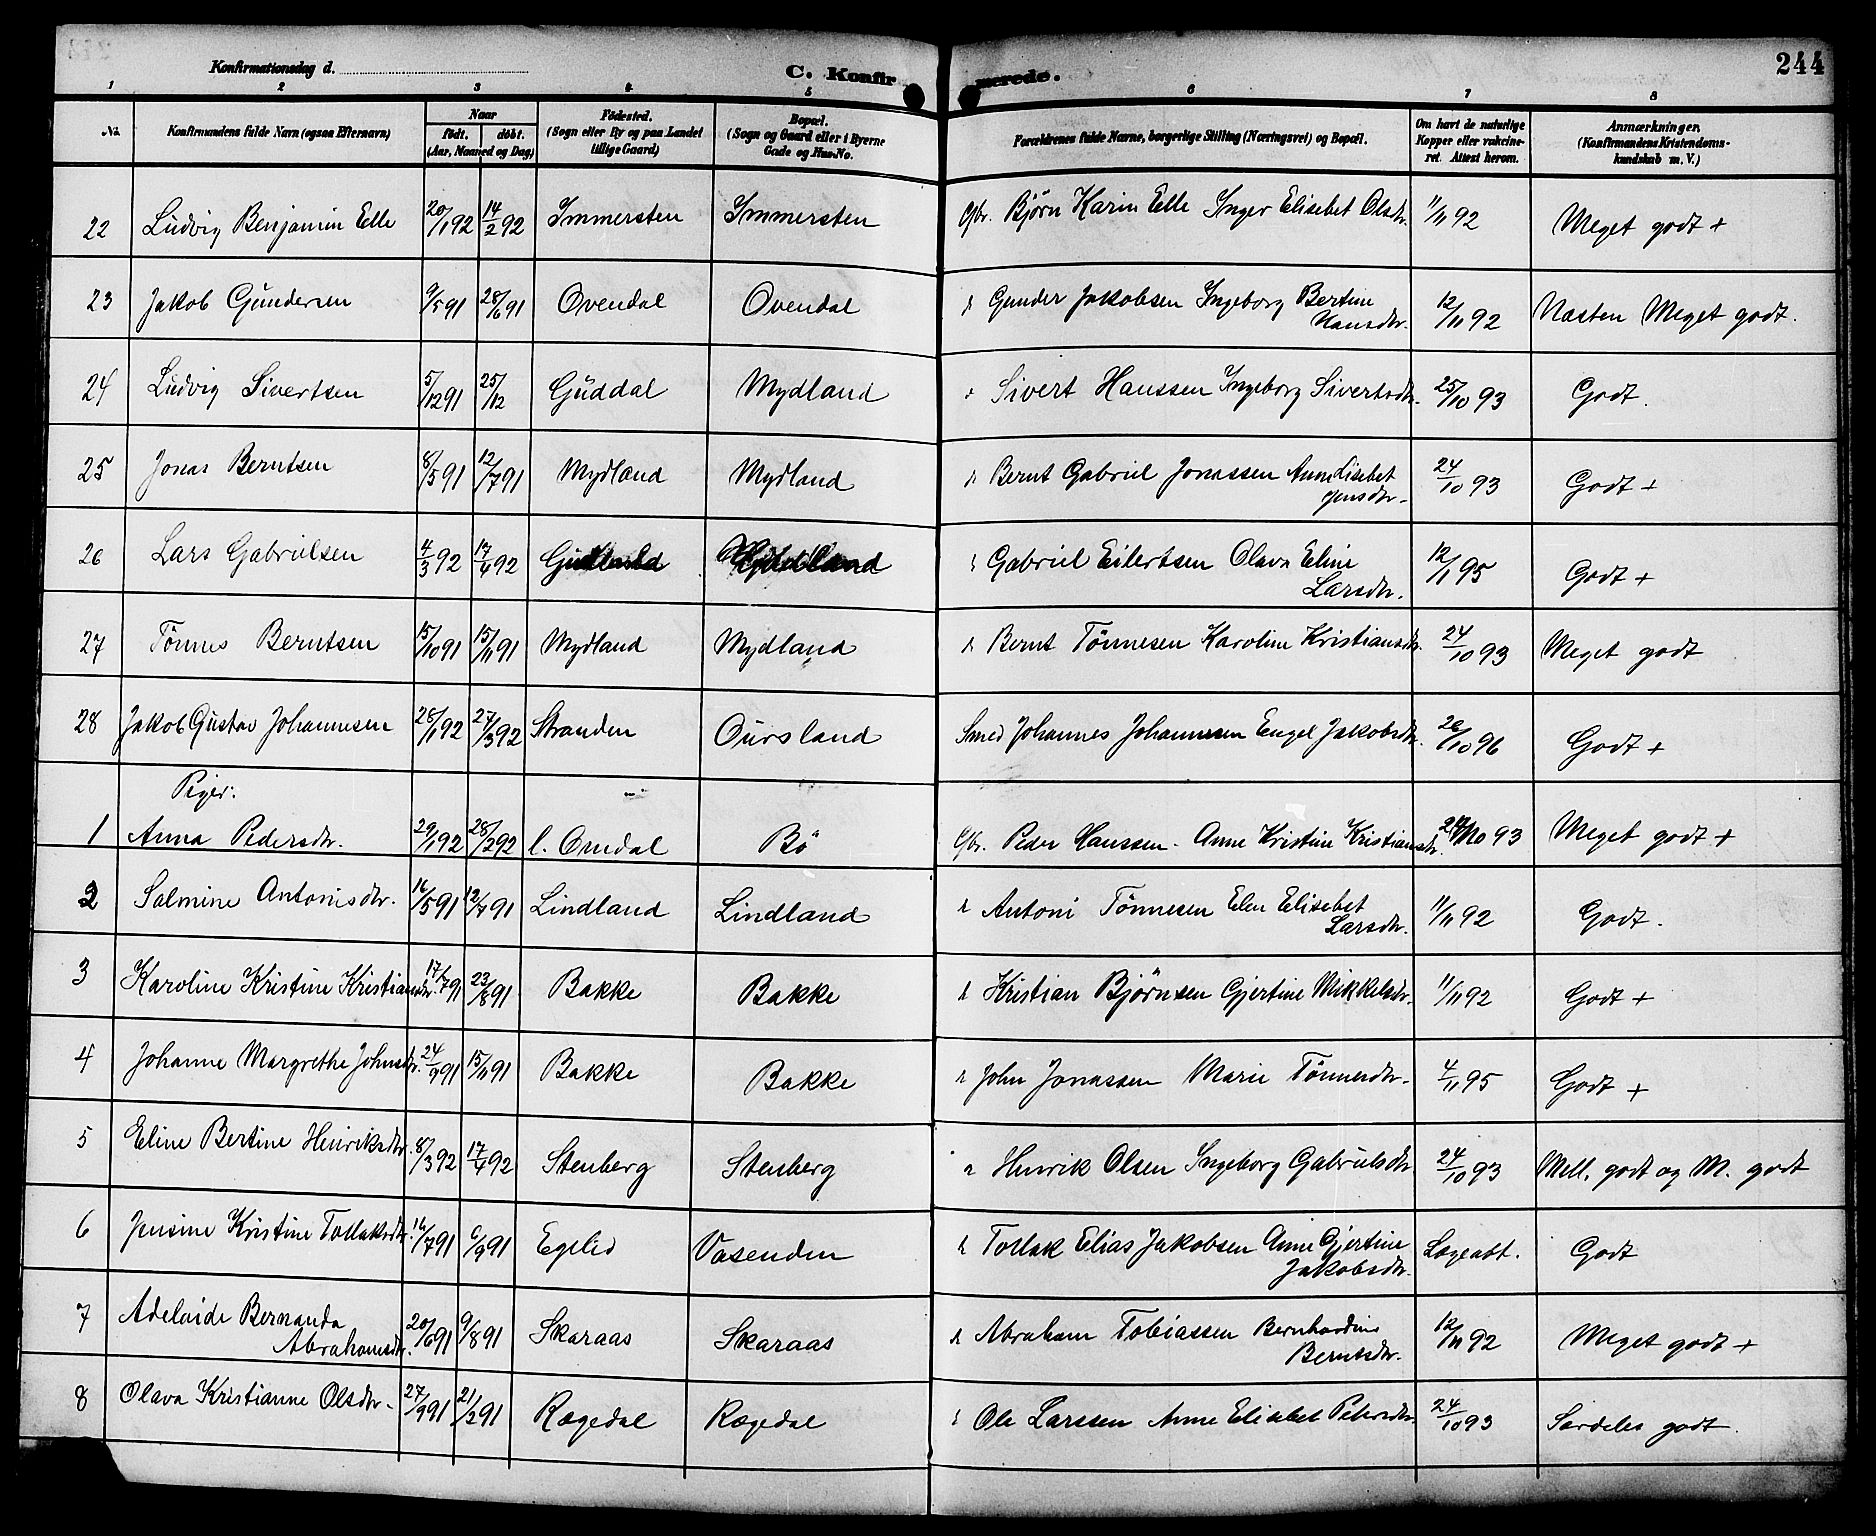 244
Konfirmationsdag d.
C. Konfirmerede.
1 2 3 4 5 6 7 8
No. Konfirmandens fulde Navn (ogsaa Efternavn) Naar født. døbt. (Aar, Maaned og Dag) Fødested. (Sogn eller By og paa Landet tillige Gaard) Bopæl. (Sogn og Gaard eller i Byerne Gade og Hus-No. Forældrenes fulde Navne, borgerlige Stilling (Næringsvei) og Bopæl. Om havt de naturlige Kopper eller vakcineret. Attest herom. Anmærkninger. (Konfirmandens Kristendomskundskab m. V.)
22 Ludvig Benjamin Elle 20/1 92 14/2 92 Immersten Immersten Gbr. Bjørn Karin Elle Inger Elisebet Olsdtr. 11/11 92 Meget godt +
23 Jakob Gundersen 9/5 91 28/6 91 Ovendal Ovendal Gunder Jakobsen Ingeborg Bertine
Hansdtr. 12/11 92 Næsten Meget godt.
24 Ludvig Sivertsen 5/12 91 25/12 Guddal Mydland Sivert Hanssen Ingeborg Sivertsdtr. 25/10 93 Godt.
25 Jonas Berntsen 8/5 91 12/7 91 Mydland Mydland Bernt Gabriel Jonassen Anne Lisebet
Jensdtr. 24/10 93 Godt +
26 Lars Gabrielsen 4/3 92 17/4 92 Gabriel Eilertsen Olava Eline
Larsdtr. 12/1 95 Godt +
27 Tønnes Berntsen 15/10 91 15/11 91 Mydland Mydland Bernt Tønnesen Karoline Kristiansdtr. 24/10 93 Meget godt
28 Jakob Gustav Johannesen 28/1 92 27/3 92 Stranden Oursland Smed Johannes Johannesen Engel Jakobsdtr. 26/10 96 Godt +
Piger:
1 Anna Pedersdtr. 29/1 92 28/2 92 l. Omdal Bø Gbr. Peder Hanssen. Anne Kristine Kristiansdtr. 93 Meget godt +
2 Salmine Antonisdtr. 16/5 91 12/7 91 Lindland Lindland Antoni Tønnesen Elen Elisebet
Larsdtr. 11/11 92 Godt.
3 Karoline Kristine Kristiansdtr. 17/7 91 23/8 91 Bakke Bakke Kristian Bjørnsen Gjertine Mikkelsdtr. 11/11 92 Godt +
4 Johanne Margrethe Johnsdtr. 24/9 91 15/11 91 Bakke Bakke John Jonassen Marie Tønnesdtr. 4/11 95 Godt +
5 Eline Bertine Henriksdtr. 8/3 92 17/4 92 Stenberg Stenberg Henrik Olsen Ingeborg Gabrielsdtr. 24/10 93 Mell. godt og M. godt
6 Jensine Kristine Tollaksdtr. 16/7 91 6/9 91 Egelid Vasenden Tollak Elias Jakobsen Anne Gjertine
Jakobsdtr. Lægeatt. Godt
7 Adelaide Bernanda
Abrahamsdtr. 20/6 91 9/8 91 Skaraas Skaraas Abraham Tobiassen Bernhardine
Berntsdtr. 12/11 92 Meget godt +
8 Olava Kristianne Olsdtr. 27/9 91 21/2 91 Rægedal Rægedal Ole Larssen Anne Elisebet Pedersdtr. 24/10 93 Særdeles godt.